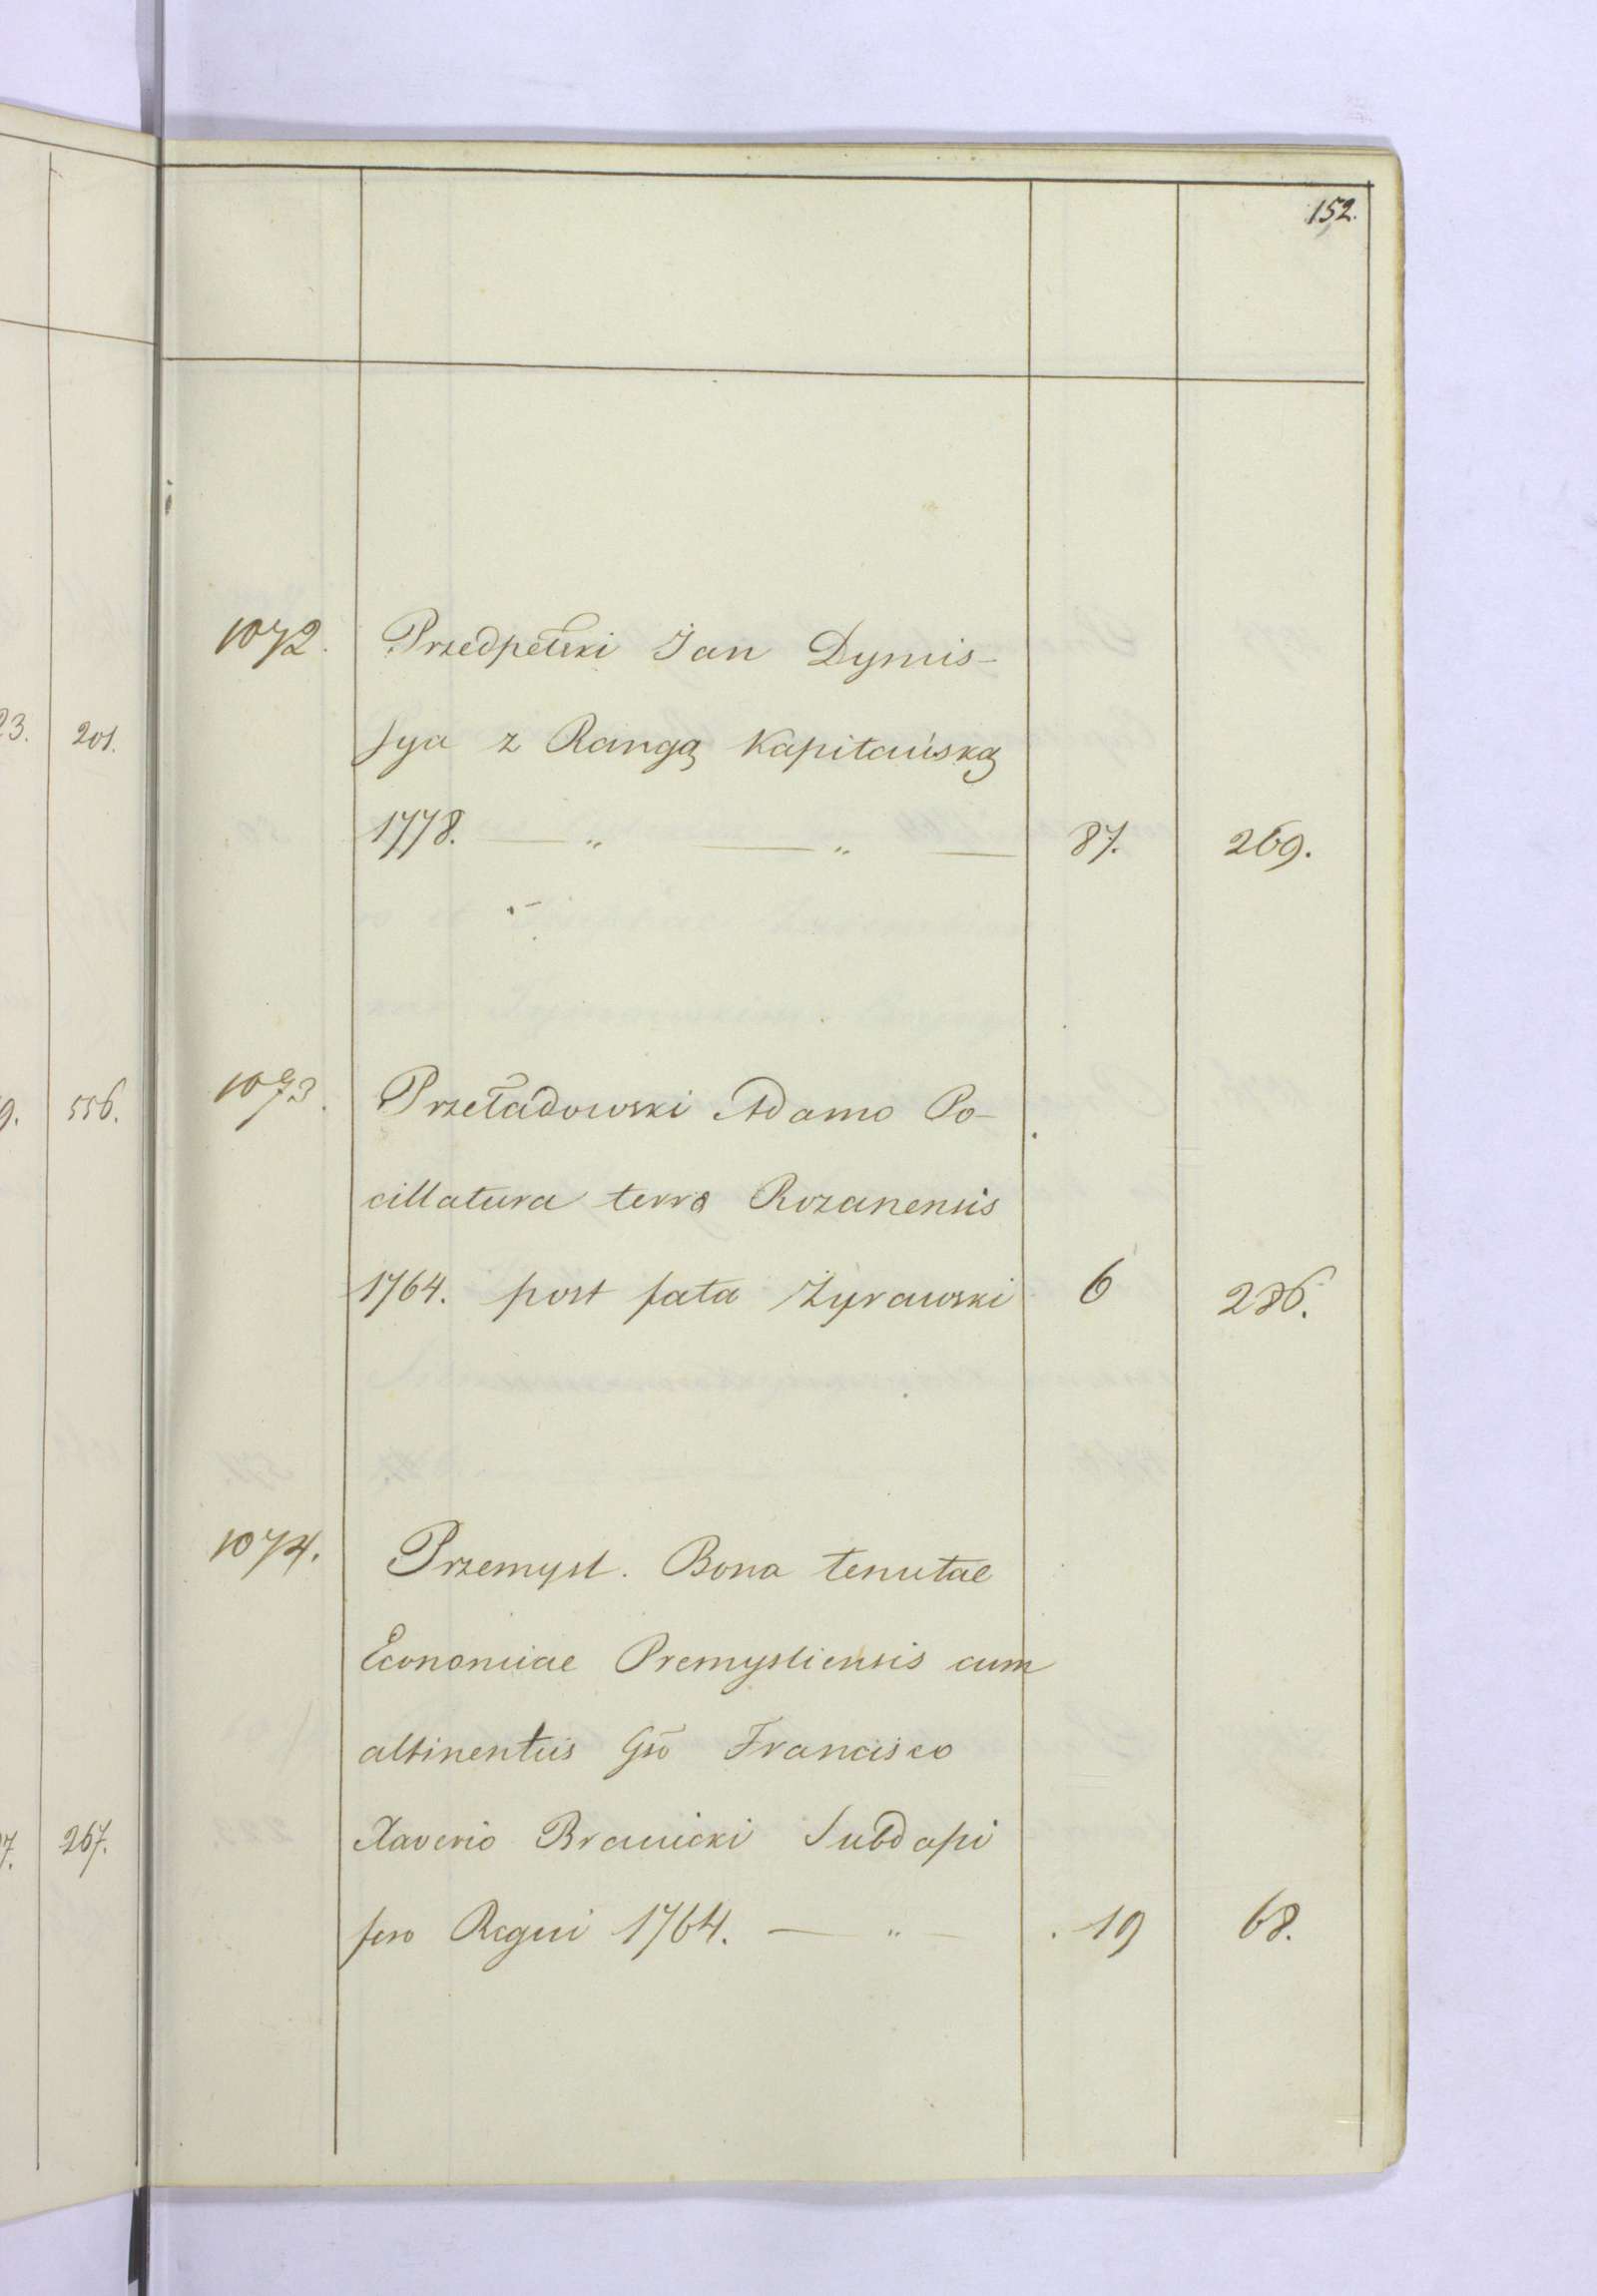 152.
23. 201.
1072. Przedpełski Jan Dymis-
sya z Rangą Kapitańską
1778. — „ — „ — 87. 269.
9. 556.
1073. Przeładowski Adamo Po-
cillatura terra Rozanensis
1764. post fata Żyrawski 6 286.
1074. Przemysl. Bona tenutae
Economiae Premysliensis cum
altinentiis Gso Francisco
7. 267.
Xaverio Branicki Subdapi
fero Regni 1764. — „ — 19 68.